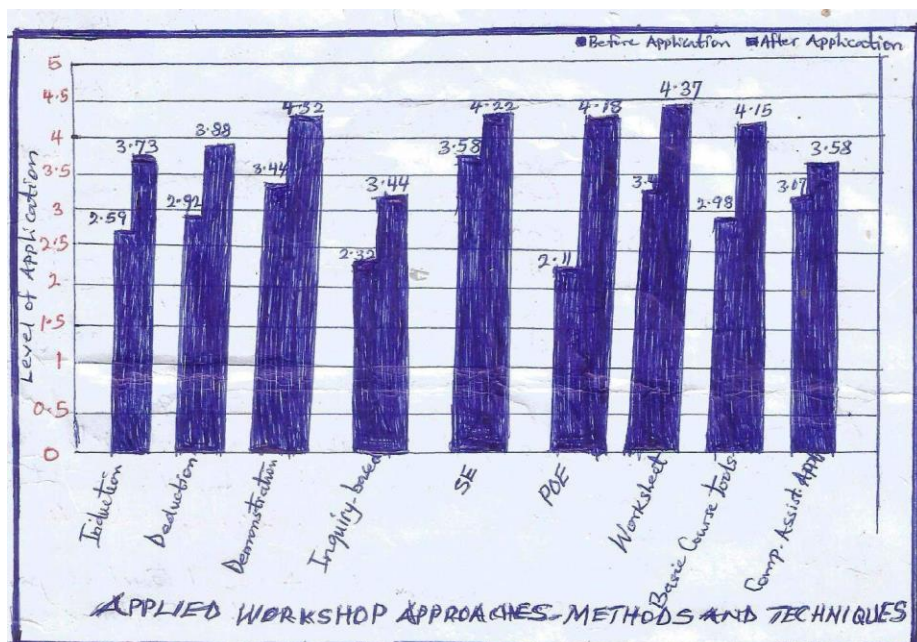 Before Application After Application
5
4.5
4
3.5
3
2.5
2
1.5
1
0.5
0
Level of Application
2.59 3.73
2.92 3.88
3.44 4.32
2.32 3.44
3.58 4.22
2.11 4.18
4.37
2.98 4.15
3.07 3.58
Induction
Deduction
Demonstration
Inquiry based
SE
POE
Worksheet
Basic Course Tools
Comp. Assist.
APPLIED WORKSHOP APPROACHES-METHODS AND TECHNIQUES